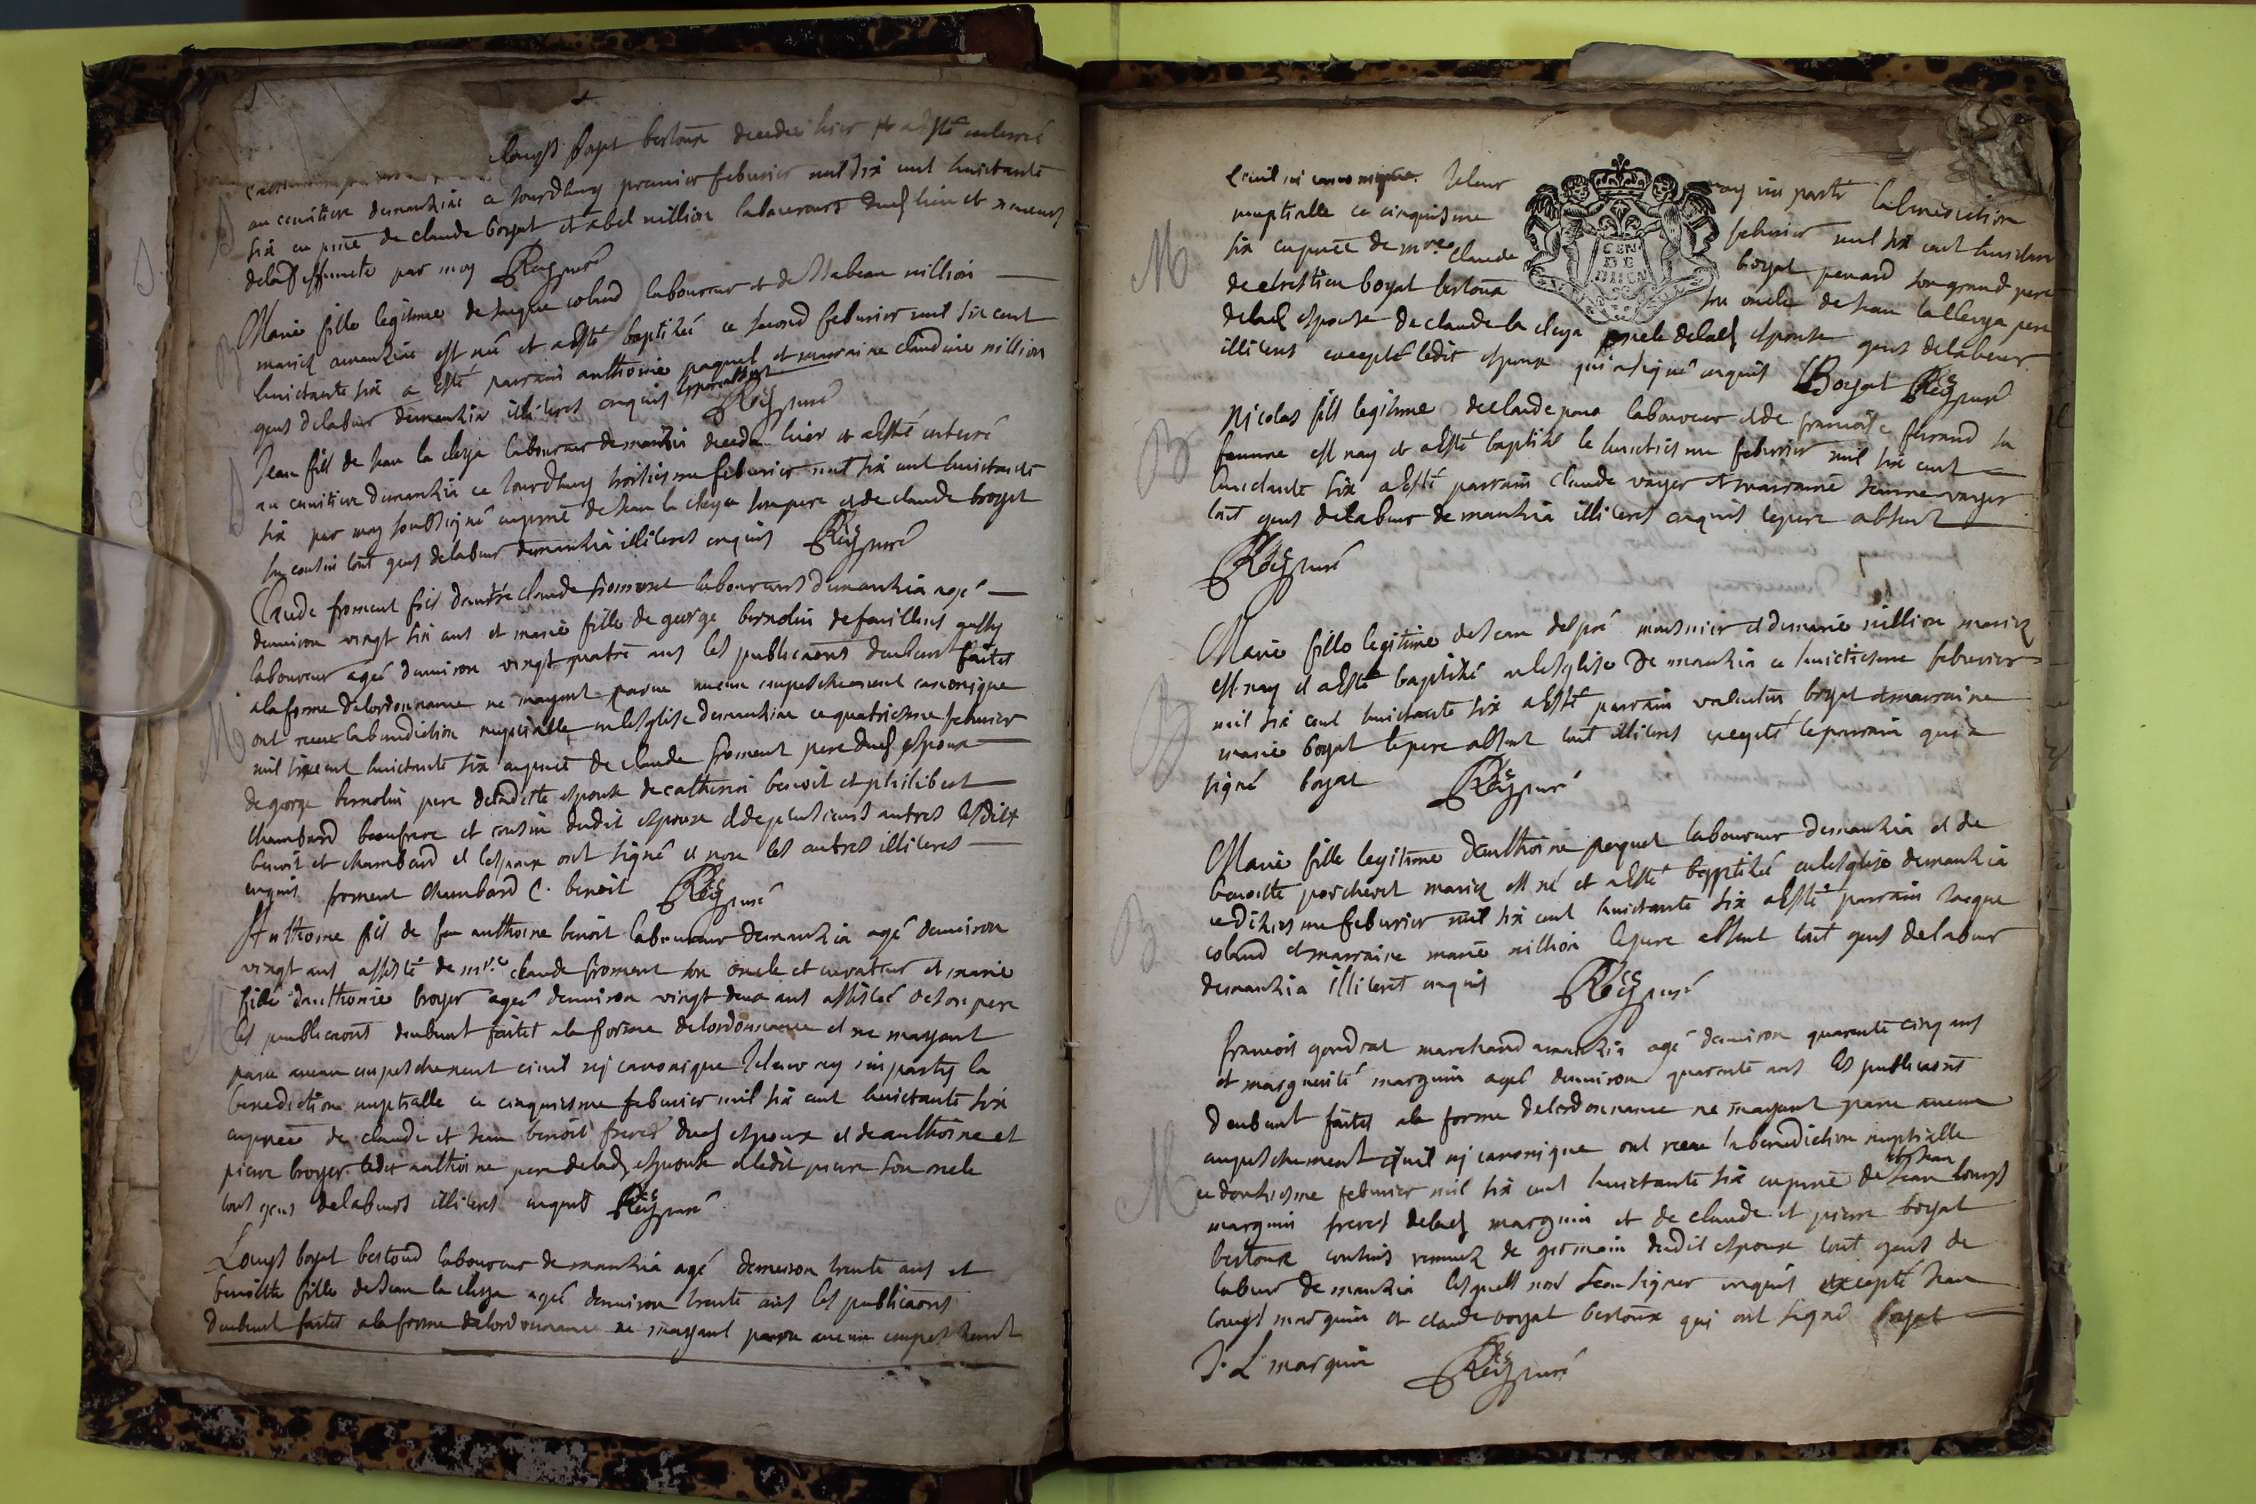 Louys boyat bestoux decedee hier et a esté enterré
au cemitiere demanziac ce jourdhuy premier febvrier mil six cent huictante
six en pnce de claude boyat et abel million laboureurs dud lieu et
delad deffuncte par moy Rey curé
Marie fille legitime de Jaque coband laboureur et de Isabeau million
mariez amanziac est née et a esté baptisée ce second febvrier mil six cent
huictante six a esté parrain anthoine paquet et marraine claudine million
gens delabeur demanzia illiteres enquis le pere absent Rey curé
Jean fils de Jean la cleya laboureur demanzia decedé hier et a esté enterré
au cemitiere demanzia ce jourdhuy troisiesme febvrier mil six cent huictante
six par moy soubsigné en pnce de Jean la cleya son pere et de claude broyat
son cousin tout gens delabeur demanzia illiteres enquis Rey curé
Claude froment fils dautre claude froment laboureurs demanzia agé
denviron vingt six ans et marie fille de george bernolin defeuillens aussy
laboureur agée denviron vingt quatre ans les publicaons deubment faites
alaforme delordonnance ne mayant parue aucun empeschement canonique
ont receu labenediction nuptialle enlesglise demanziac ce quatriesme febvrier
mil six cent huictante six en pnce de claude froment pere dud espoux
de george bernolin pere deladitte espouse decatherin benoit et philibert
chambard beaufrere et cousin dudit espoux et de plusieurs autres lesdits
benoit et chambard et lespoux ont signé et non les autres illiteres
enquis froment chambard C. benoit Rey curé
Anthoine fils de feu anthoine benoit laboureur demanzia agé denviron
vingt ans assisté de mre claude froment son oncle et curateur et marie
fille danthoine broyer agée denviron vingt deux ans assistée de son pere
les publicaons deubment faites ala forme delordonnance et ne mayant
parue aucun empeschement civil nj canonique Je leur ay imparty la
benediction nuptialle ce cinquiesme febvrier mil six cent huictante six
en pnce de claude et Jean benoit freres dud espoux et de anthoine et
pierre broyer ledit anthoine pere delad espouse et ledit pierre son oncle
tous gens delabeurs illiteres enquis Rey curé
Louys boyat bestoud laboureur de manzia agé denviron trente ans et
benoitte fille de Jean la cleya agée denviron trente ans les publicaons
deubment faites ala forme delordonnance ne mayant parue aucun empeschement
Civil nj canonique Je leur ay imparti labenediction
nuptialle ce cinquiesme febvrier mil six cent huictante
six en pnce de mre claude boyat penard son grand pere
de boyat bestoux son oncle de Jean la cleya pere
delad espouse de claude la cleya oncle delad espouse gens delabeur
illiteres excepté ledit espoux qui a signé enquis Boyat Rey curé
CEN
DE
DIJON
Nicolas fils legitime declaude poux laboureur et de francoise ferrand sa
femme est nay et a esté baptisé le huictiesme febvrier mil six cent
huictante six a esté parrain claude vayer et marraine Jeanne vayer
tout gens delabeur demanzia illiteres enquis lepere absent
Rey curé
Marie fille legitime de Jean despré meusnier et de marie million mariez
est nay et a esté baptisée enlesglise de manzia ce huictiesme febvrier
mil six cent huictante six a esté parrain valentin boyat et marraine
marie boyat lepere absent tout illiteres excepté leparrain qui a
signé boyat Rey curé
Marie fille legitime danthoine paquet laboureur demanzia et de
benoitte porcheret mariez est né et a esté baptisée enlesglise demanzia
ce diziesme febvrier mil six cent huictante six a esté parrain Jacque
coband et marraine marie million lepere absent tout gens delabeur
demanzia illiteret enquis Rey curé
francois gondrat marchand amanzia agé denviron quarente cinq ans
et margueritte marguin agée denviron quarente ans les publicaons
deubment faites ala forme delordonnance ne mayant parue aucun
empeschement civil nj canonique ont receu labenediction nuptialle
ce douziesme febvrier mil six cent huictante six en pnce de Jean louys
marguin freres delad marguin et de claude et pierre boyat
bestoux cousins remuez de germain dudit espoux tout gens de
labeur de manzia lesquels nont sceu signer enquis excepté Jean
Louys marguin et claude boyat bestoux qui ont signé boyat
J. L marguin Rey curé